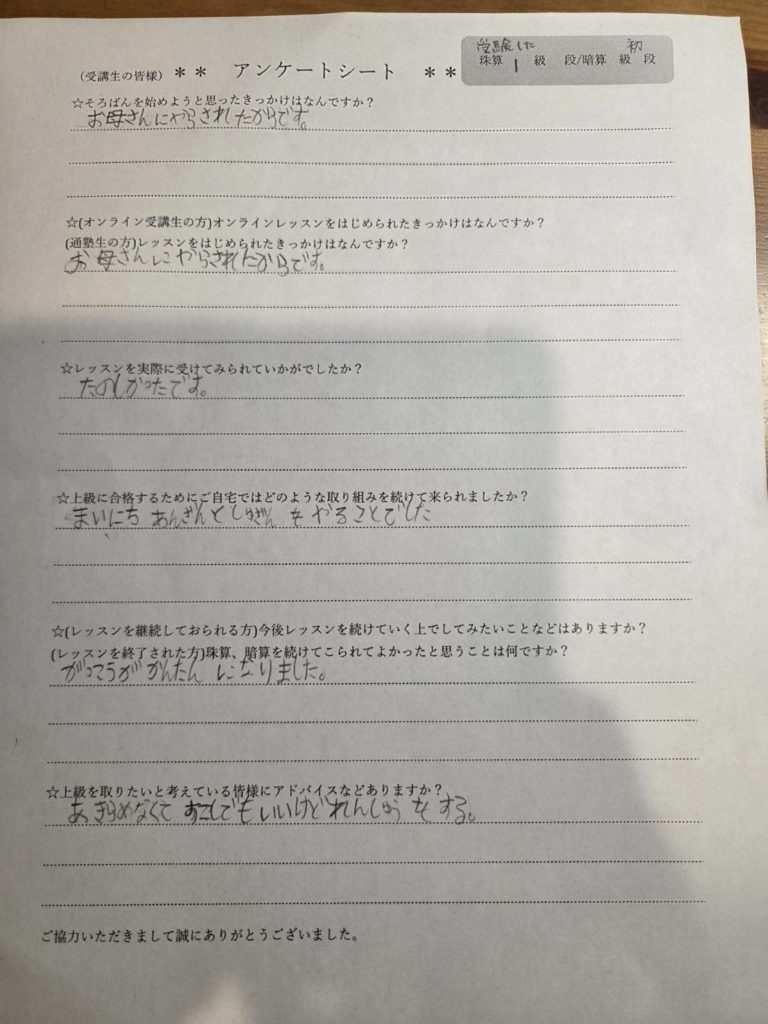 受験した 初
珠算 1 級 段/暗算 級 段
(受講生の皆様) ** アンケートシート **
☆そろばんを始めようと思ったきっかけはなんですか?
お母さんにやらされたからです。
☆(オンライン受講生の方)オンラインレッスンをはじめられたきっかけはなんですか?
(通塾生の方)レッスンをはじめられたきっかけはなんですか?
お母さんにやらされたからです。
☆レッスンを実際に受けてみられていかがでしたか?
たのしかったです。
☆上級に合格するためにご自宅ではどのような取り組みを続けて来られましたか?
まいにち あんざんとしゅざん をやることでした
☆(レッスンを継続しておられる方)今後レッスンを続けていく上でしてみたいことなどはありますか?
(レッスンを終了された方)珠算、暗算を続けてこられてよかったと思うことは何ですか?
がっこうが かんたん になりました。
☆上級を取りたいと考えている皆様にアドバイスなどありますか?
あきらめなくて すこしでもいいけどれんしゅうをする。
ご協力いただきまして誠にありがとうございました。